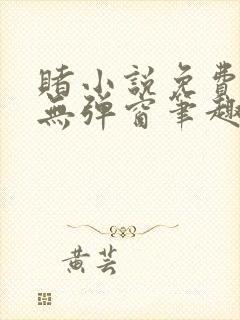 賭小說免費
無彈窗筆趣
黄芸